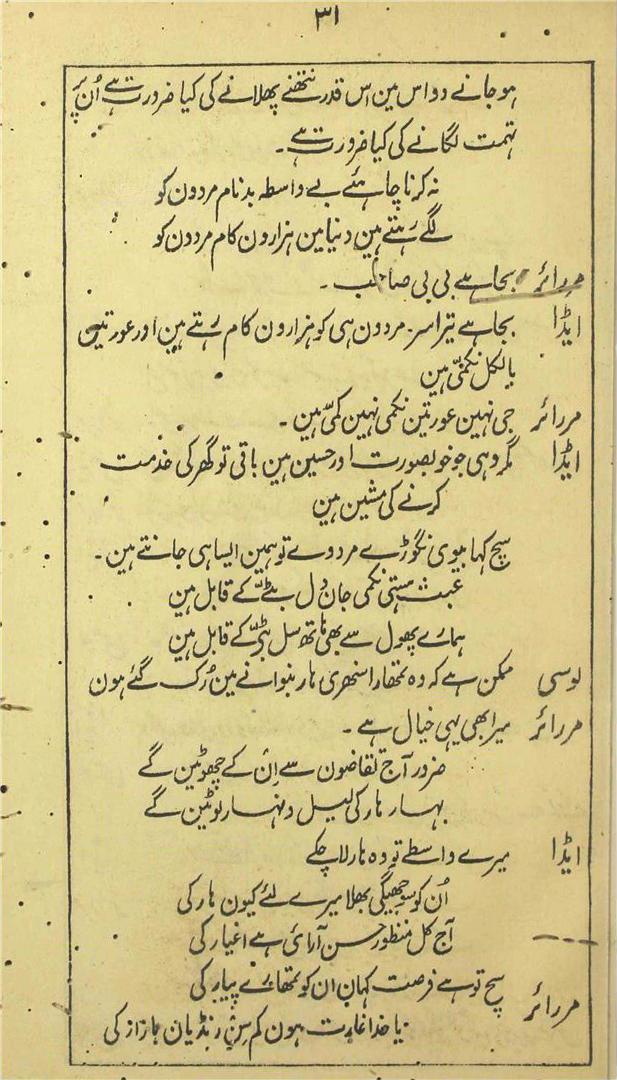 ۳۱
ہو جانے دو اس مین اس قدر نتھنے پھلانے کی کیا ضرورت ہے اُن پر
تہمت لگانے کی کیا ضرورت ہے ۔
نہ کرنا چاہئے بے واسطہ بدنام مردون کو
لگے رہتے ہین دنیا مین ہزارون کام مردون کو
مررائر بجا ہے بی بی صاحب ۔
ایڈا بجا ہے تیرا سر۔ مردون ہی کو ہزارون کام رہتے ہین اور عورتین
بالکل نکمّی ہین
مررائر جی نہین عورتین نکمی نہین کمّی ہین ۔
ایڈا مگر وہی جو خوبصورت اور حسین ہین باقی تو گھر کی خدمت
کرنے کی مشین ہین
سچ کہا بیوی نگوڑے مردوے تو ہمین ایسا ہی جانتے ہین ۔
عبث سستی نکمی جان دل بٹے کے قابل ہین
ہمارے پھول سے بھی ہاتھ سل بٹے کے قابل ہین
لوسی ممکن ہے کہ وہ تمھارا سنہری ہار بنوانے مین رُک گئے ہون
مررائر میرا بھی یہی خیال ہے ۔
ضرور آج تقاضون سے اِن کے چھوٹین گے
بہار ہار کی لیل و نہار لوٹین گے
ایڈا میرے واسطے تو وہ ہار لا چکے
اُن کو سوجھیگی بھلا میرے لئے کیون ہار کی
آج کل منظور حسن آرائی ہے اغیار کی
مررائر سچ تو ہے فرصت کہان ان کو تمھارے پیار کی
یا خدا غارت ہون کم سِن رنڈیان بازار کی